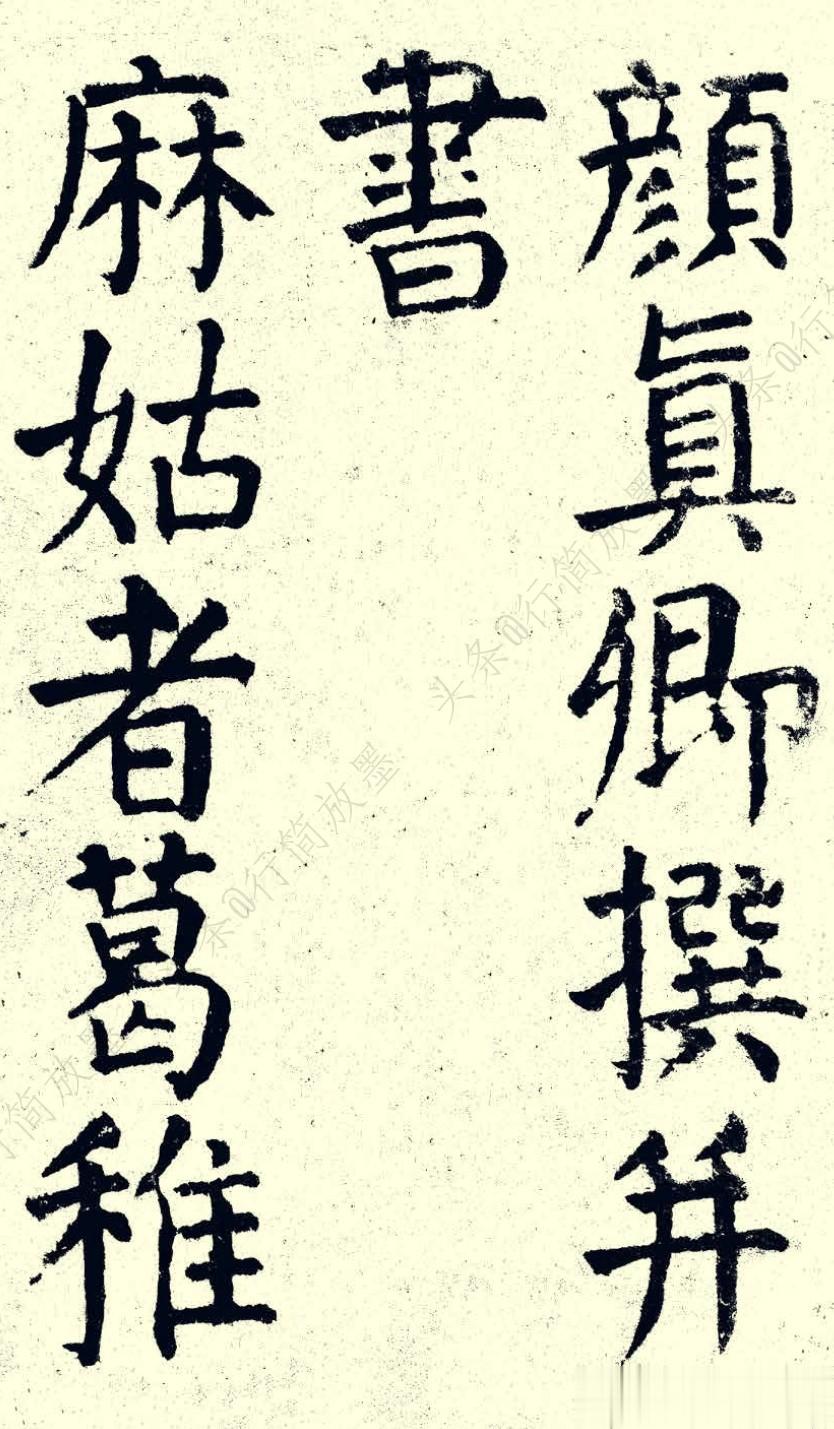 顔眞卿撰并
書
麻姑者葛稚
头条@行简放墨
头条@行简放墨
头条@行简放墨